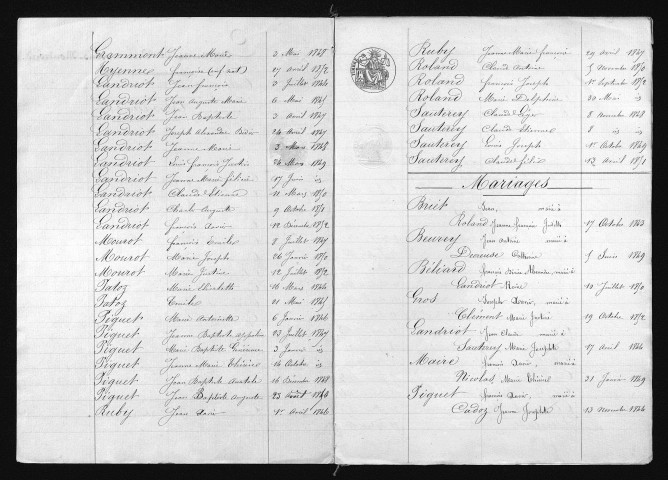 Grammont Jeanne Marie 2 Mai 1848
Myenne françoise (enf nat) 27 avril 1852
Landriot Jean françois 3 Juillet 1844
Landriot Jean Auguste Marie 6 Mai 1845
Landriot Jean Baptiste 3 avril 1847
Landriot Joseph Alexandre 24 avril 1847
Landriot Jeanne Marie 3 Mars 1848
Landriot françois Justin 26 Mars 1849
Landriot Jeanne Marie 17 Juin is
Landriot Claude Etienne 11 Mars 1850
Landriot Charles Auguste 9 Octobre 1851
Landriot françois Xavier 12 Décembre 1852
Mourot françois 8 Juillet 1847
Mourot Marie Joseph 26 Janvier 1850
Mourot Marie Justine 12 Juillet 1852
Patoz Marie Elisabeth 16 Mars 1844
Patoz Emile 21 Mai 1845
Piguet Marie Antoinette 6 Janvier 1844
Piguet Jeanne Baptiste 23 Juillet 1847
Piguet Marie Baptiste 3 Janvier is
Piguet Jeanne Marie 14 Octobre is
Piguet Jean Baptiste Anatole 16 Décembre 1848
Piguet Jean Baptiste Auguste 25 Août 1844
Ruby Jean Louis 1er Avril 1844
Ruby Jeanne Marie françoise 29 avril 1847
Roland Claude Antoine 5 Novembre 1850
Roland françois Joseph 1er Septembre 1852
Roland Marie Delphine 30 Mai is
Sauterey Claude 8 Novembre 1848
Sauterey Claude Etienne 8 is is
Sauterey Louis Joseph 1er Octobre 1849
Sauterey Claude félix 13 Avril 1851
Mariages
Briet Jean, marié à
Roland Jeanne françoise Judith 17 Octobre 1843
Beurey Jean Antoine marié à
Catherine 5 Juin 1849
Béliard françois marié à
Landriot Reine 10 Juillet 1850
Gros Joseph Xavier, marié à
Clément Marie Justine 19 Octobre 1852
Landriot Jean Claude marié à
Sauterey Marie Josephte 17 Avril 1844
Maire françois Xavier, marié à
Nicolas Marie 31 Janvier 1849
Piguet françois Xavier, marié à
Cadoz Jeanne Josephte 13 Novembre 1844